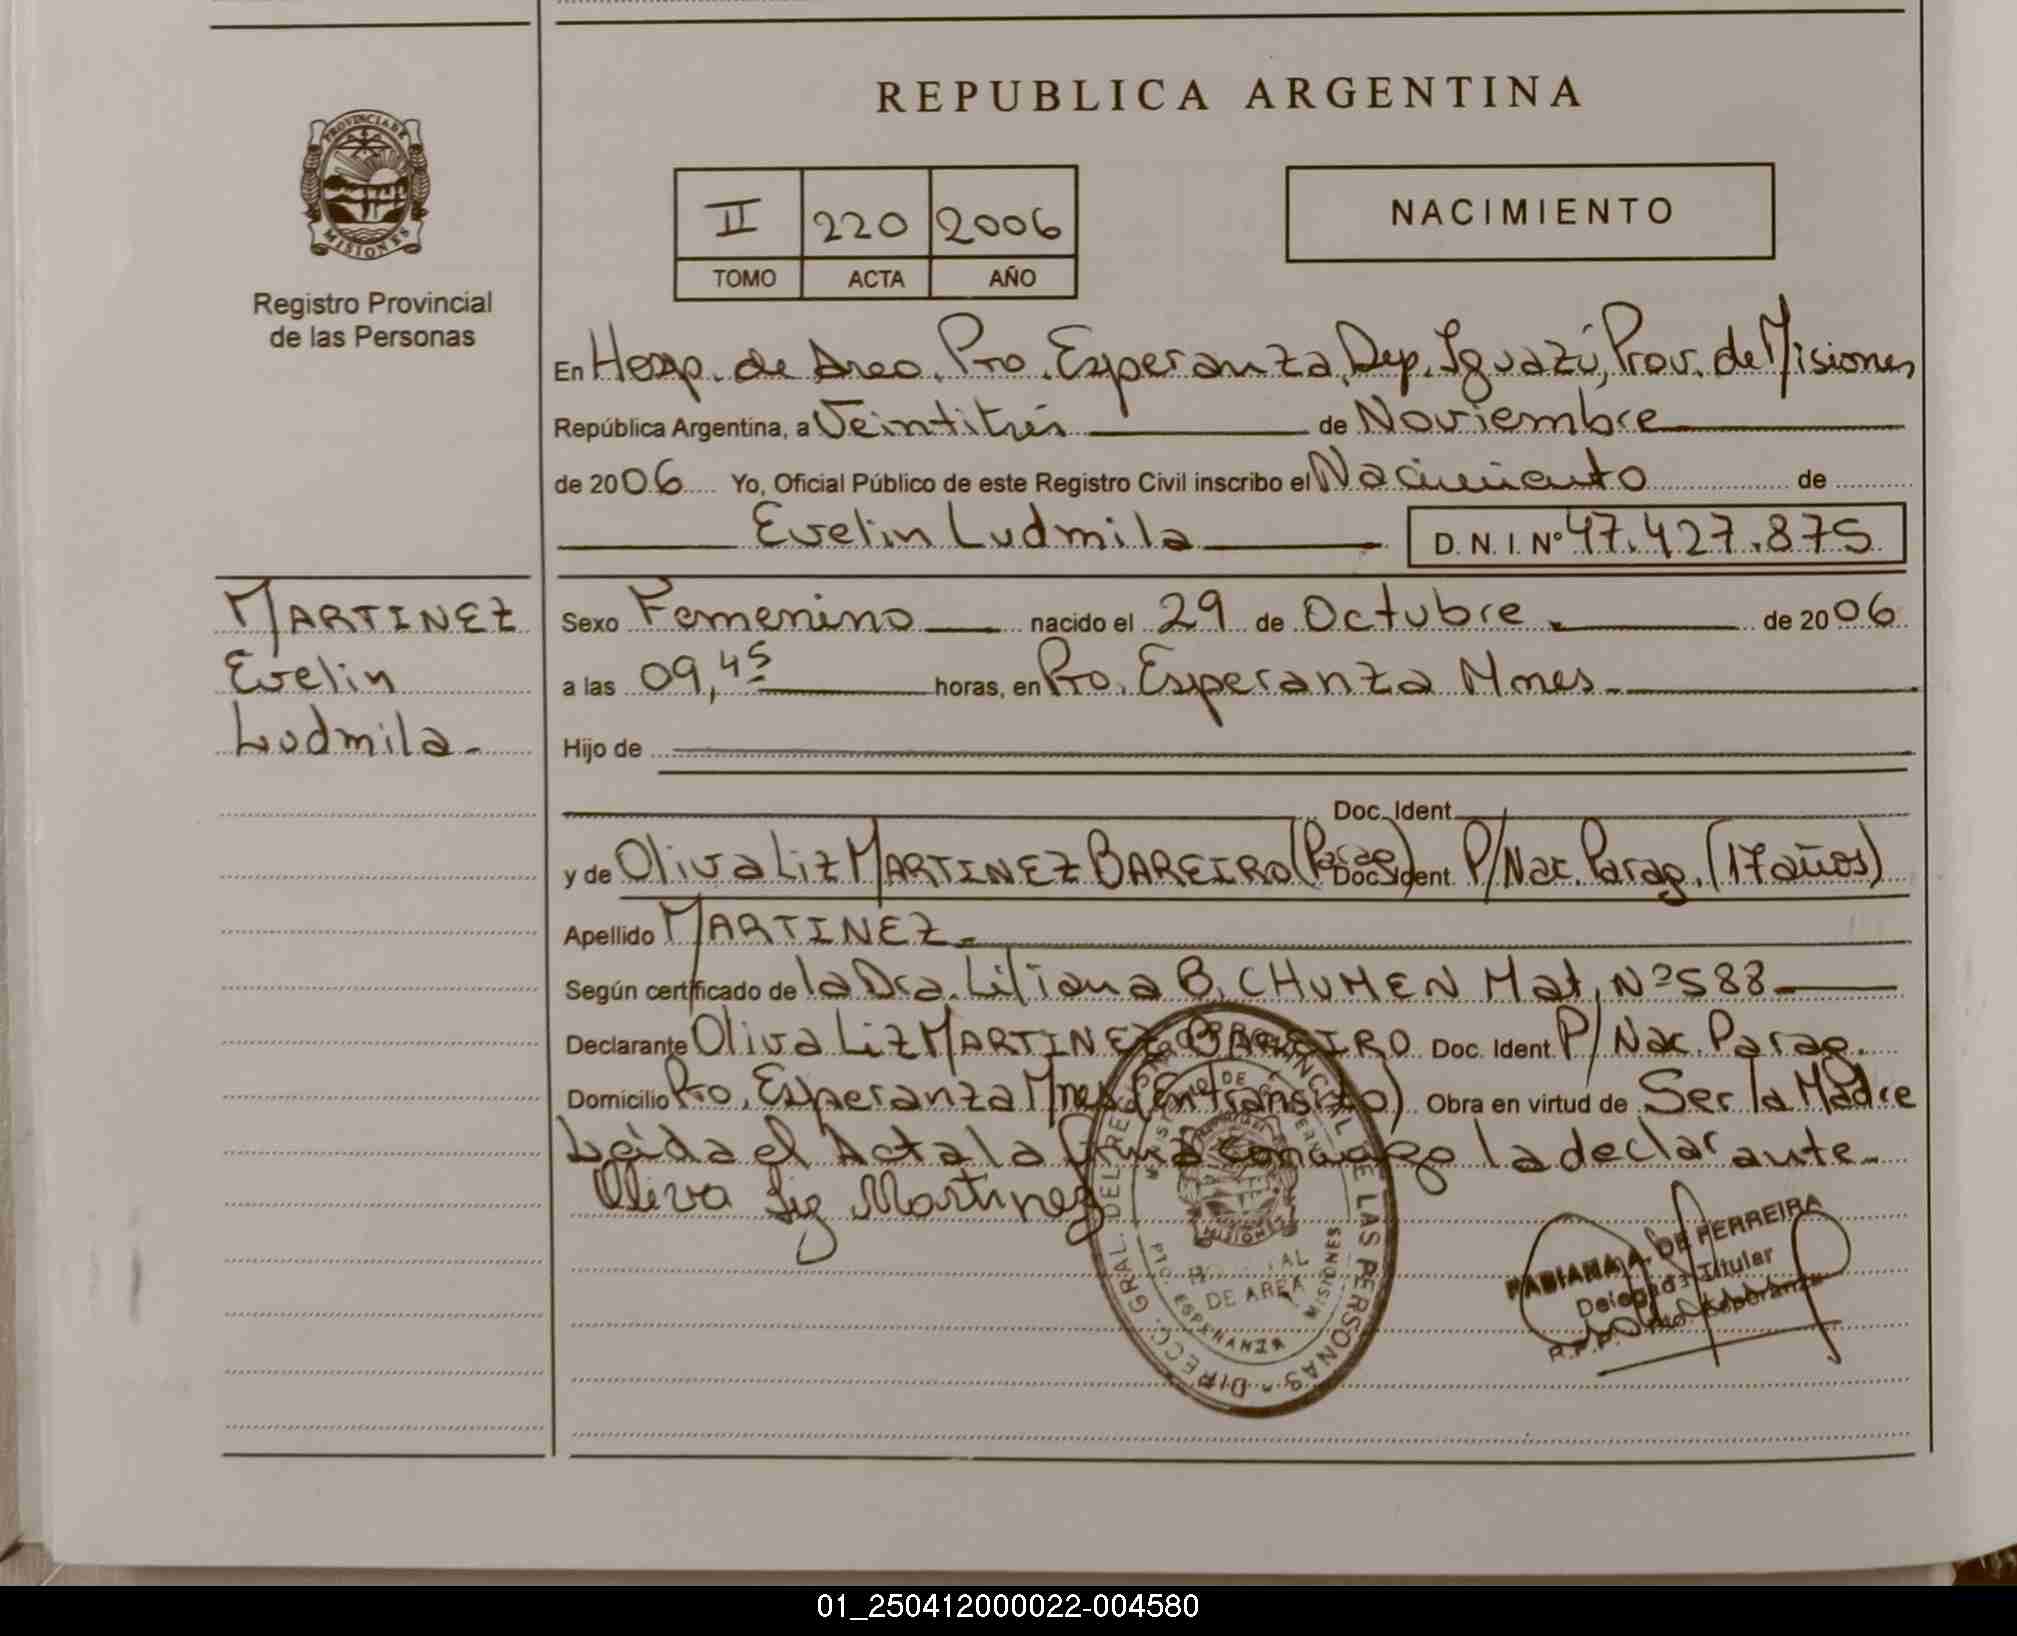 REPUBLICA ARGENTINA
PROVINCIA DE
MISIONES
Registro Provincial
de las Personas
II 220 2006
TOMO ACTA AÑO
NACIMIENTO
En Hosp. de Area, Pto. Esperanza, Dep. Iguazú, Prov. de Misiones
República Argentina, a Veintitrés de Noviembre
de 2006 Yo, Oficial Público de este Registro Civil inscribo el Nacimiento de
Evelin Ludmila D.N.I. Nº 47.427.875
MARTINEZ
Evelin
Ludmila.-
Sexo Femenino nacido el 29 de Octubre de 2006
a las 09,45 horas, en Pto. Esperanza Mnes.
Hijo de
Doc. Ident.
y de Oliva Liz MARTINEZ BAREIRO (Parag.) Doc. Ident. P/Nac. Parag. (17 años)
Apellido MARTINEZ.
Según certificado de la Dra. Liliana B. CHUMEN Mat. Nº 588
Declarante Oliva Liz MARTINEZ BAREIRO Doc. Ident. P/Nac. Parag.
Domicilio Pto. Esperanza Mnes (En transito) Obra en virtud de Ser la Madre
Leída el Acta la firma conmigo la declarante.
Oliva Liz Martinez
DIRECC. GRAL. DEL REGISTRO PROVINCIAL DE LAS PERSONAS
MINISTERIO DE GOBIERNO
MISIONES
HOSPITAL
DE AREA
PTO. ESPERANZA MISIONES
FABIANA A. DE FERREIRA
Delegada Titular
R.P.P. Pto. Esperanza
01_250412000022-004580